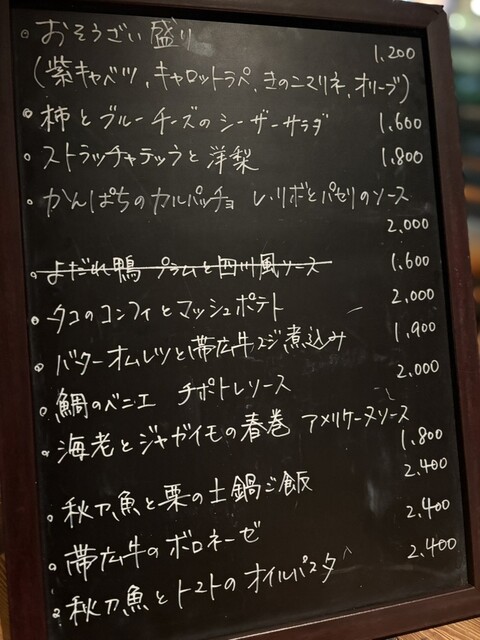 ・おそうざい盛り 1,200
(紫キャベツ、キャロットラペ、きのこマリネ、オリーブ)
・柿とブルーチーズのシーザーサラダ 1,600
・ストラッチャテッラと洋梨 1,800
・かんぱちのカルパッチョ レ・リボとパセリのソース
2,000
・よだれ鴨 プラムと四川風ソース 1,600
・タコのコンフィとマッシュポテト 2,000
・バターオムレツと帯広牛スジ煮込み 1,900
・鯛のベニエ チポトレソース 2,000
・海老とジャガイモの春巻 アメリケーヌソース
1,800
・秋刀魚と栗の土鍋ご飯 2,400
・帯広牛のボロネーゼ 2,400
・秋刀魚とトマトのオイルパスタ 2,400